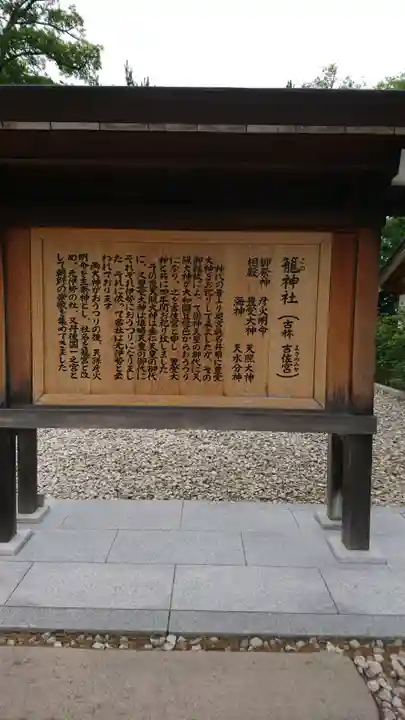 籠神社（吉祥 吉佐宮）
この
よさのみや
御祭神 彦火明命
相殿 豊受大神 天照大神
海神 天水分神
神代の昔より奥宮眞名井原に豊受
大神をお祀りして来ましたが、その
御縁故によって崇神天皇の御代に天
照大神が大和国笠縫邑からおうつり
になり、之を吉佐宮と申し、豊受大
神と共に四年間お祀り致しました。
その後天照大神は垂仁天皇の御代
に、又豊受大神は雄略天皇の御代に
それぞれ伊勢におうつりになりまし
た。それに依って當社は元伊勢と云
われております
両大神がおうつりの後、天孫彦火
明命を主祭神とし、社名を籠宮と改
め、元伊勢の社、又丹後國一之宮と
して朝野の崇敬を集めてきました